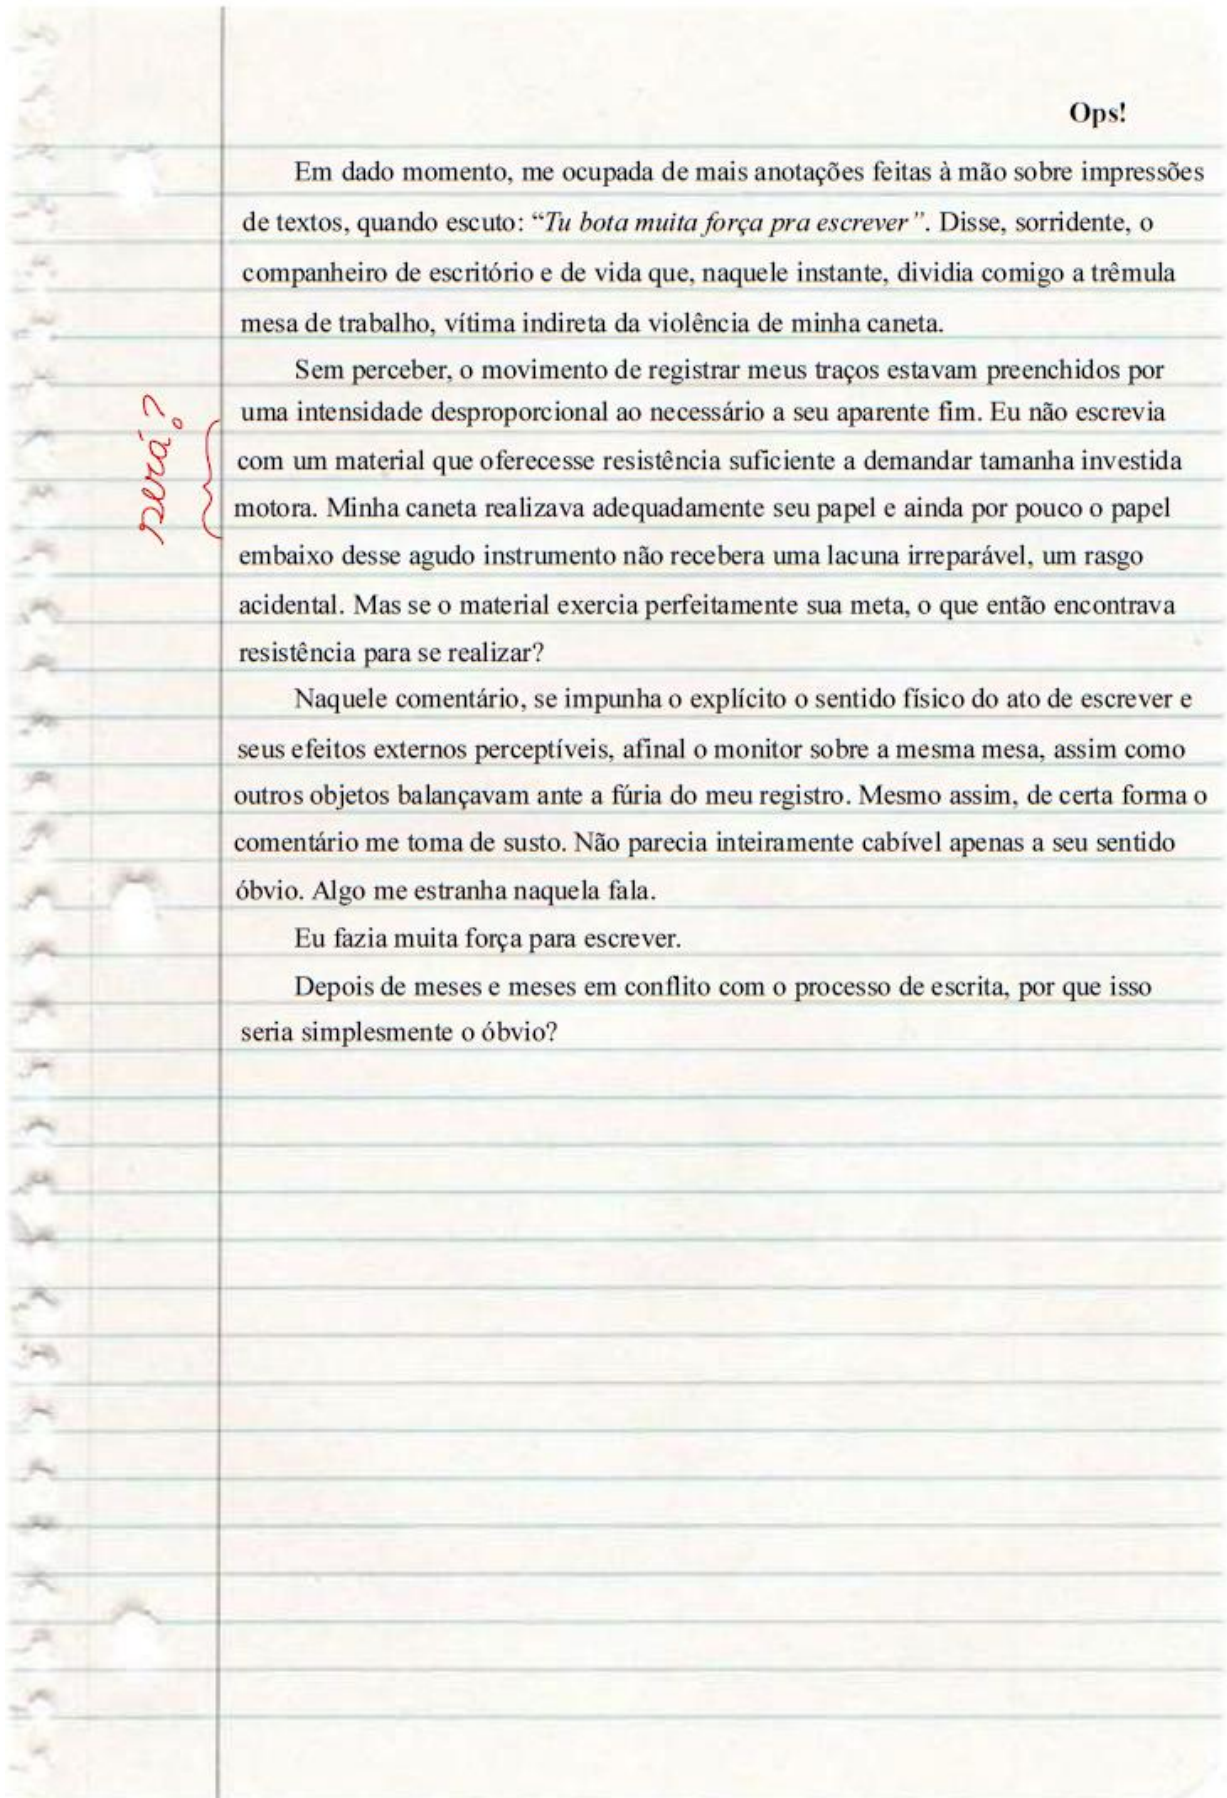 Ops!
Em dado momento, me ocupada de mais anotações feitas à mão sobre impressões
de textos, quando escuto: “Tu bota muita força pra escrever”. Disse, sorridente, o
companheiro de escritório e de vida que, naquele instante, dividia comigo a trêmula
mesa de trabalho, vítima indireta da violência de minha caneta.
Sem perceber, o movimento de registrar meus traços estavam preenchidos por
uma intensidade desproporcional ao necessário a seu aparente fim. Eu não escrevia
será?
com um material que oferecesse resistência suficiente a demandar tamanha investida
motora. Minha caneta realizava adequadamente seu papel e ainda por pouco o papel
embaixo desse agudo instrumento não recebera uma lacuna irreparável, um rasgo
acidental. Mas se o material exercia perfeitamente sua meta, o que então encontrava
resistência para se realizar?
Naquele comentário, se impunha o explícito o sentido físico do ato de escrever e
seus efeitos externos perceptíveis, afinal o monitor sobre a mesma mesa, assim como
outros objetos balançavam ante a fúria do meu registro. Mesmo assim, de certa forma o
comentário me toma de susto. Não parecia inteiramente cabível apenas a seu sentido
óbvio. Algo me estranha naquela fala.
Eu fazia muita força para escrever.
Depois de meses e meses em conflito com o processo de escrita, por que isso
seria simplesmente o óbvio?